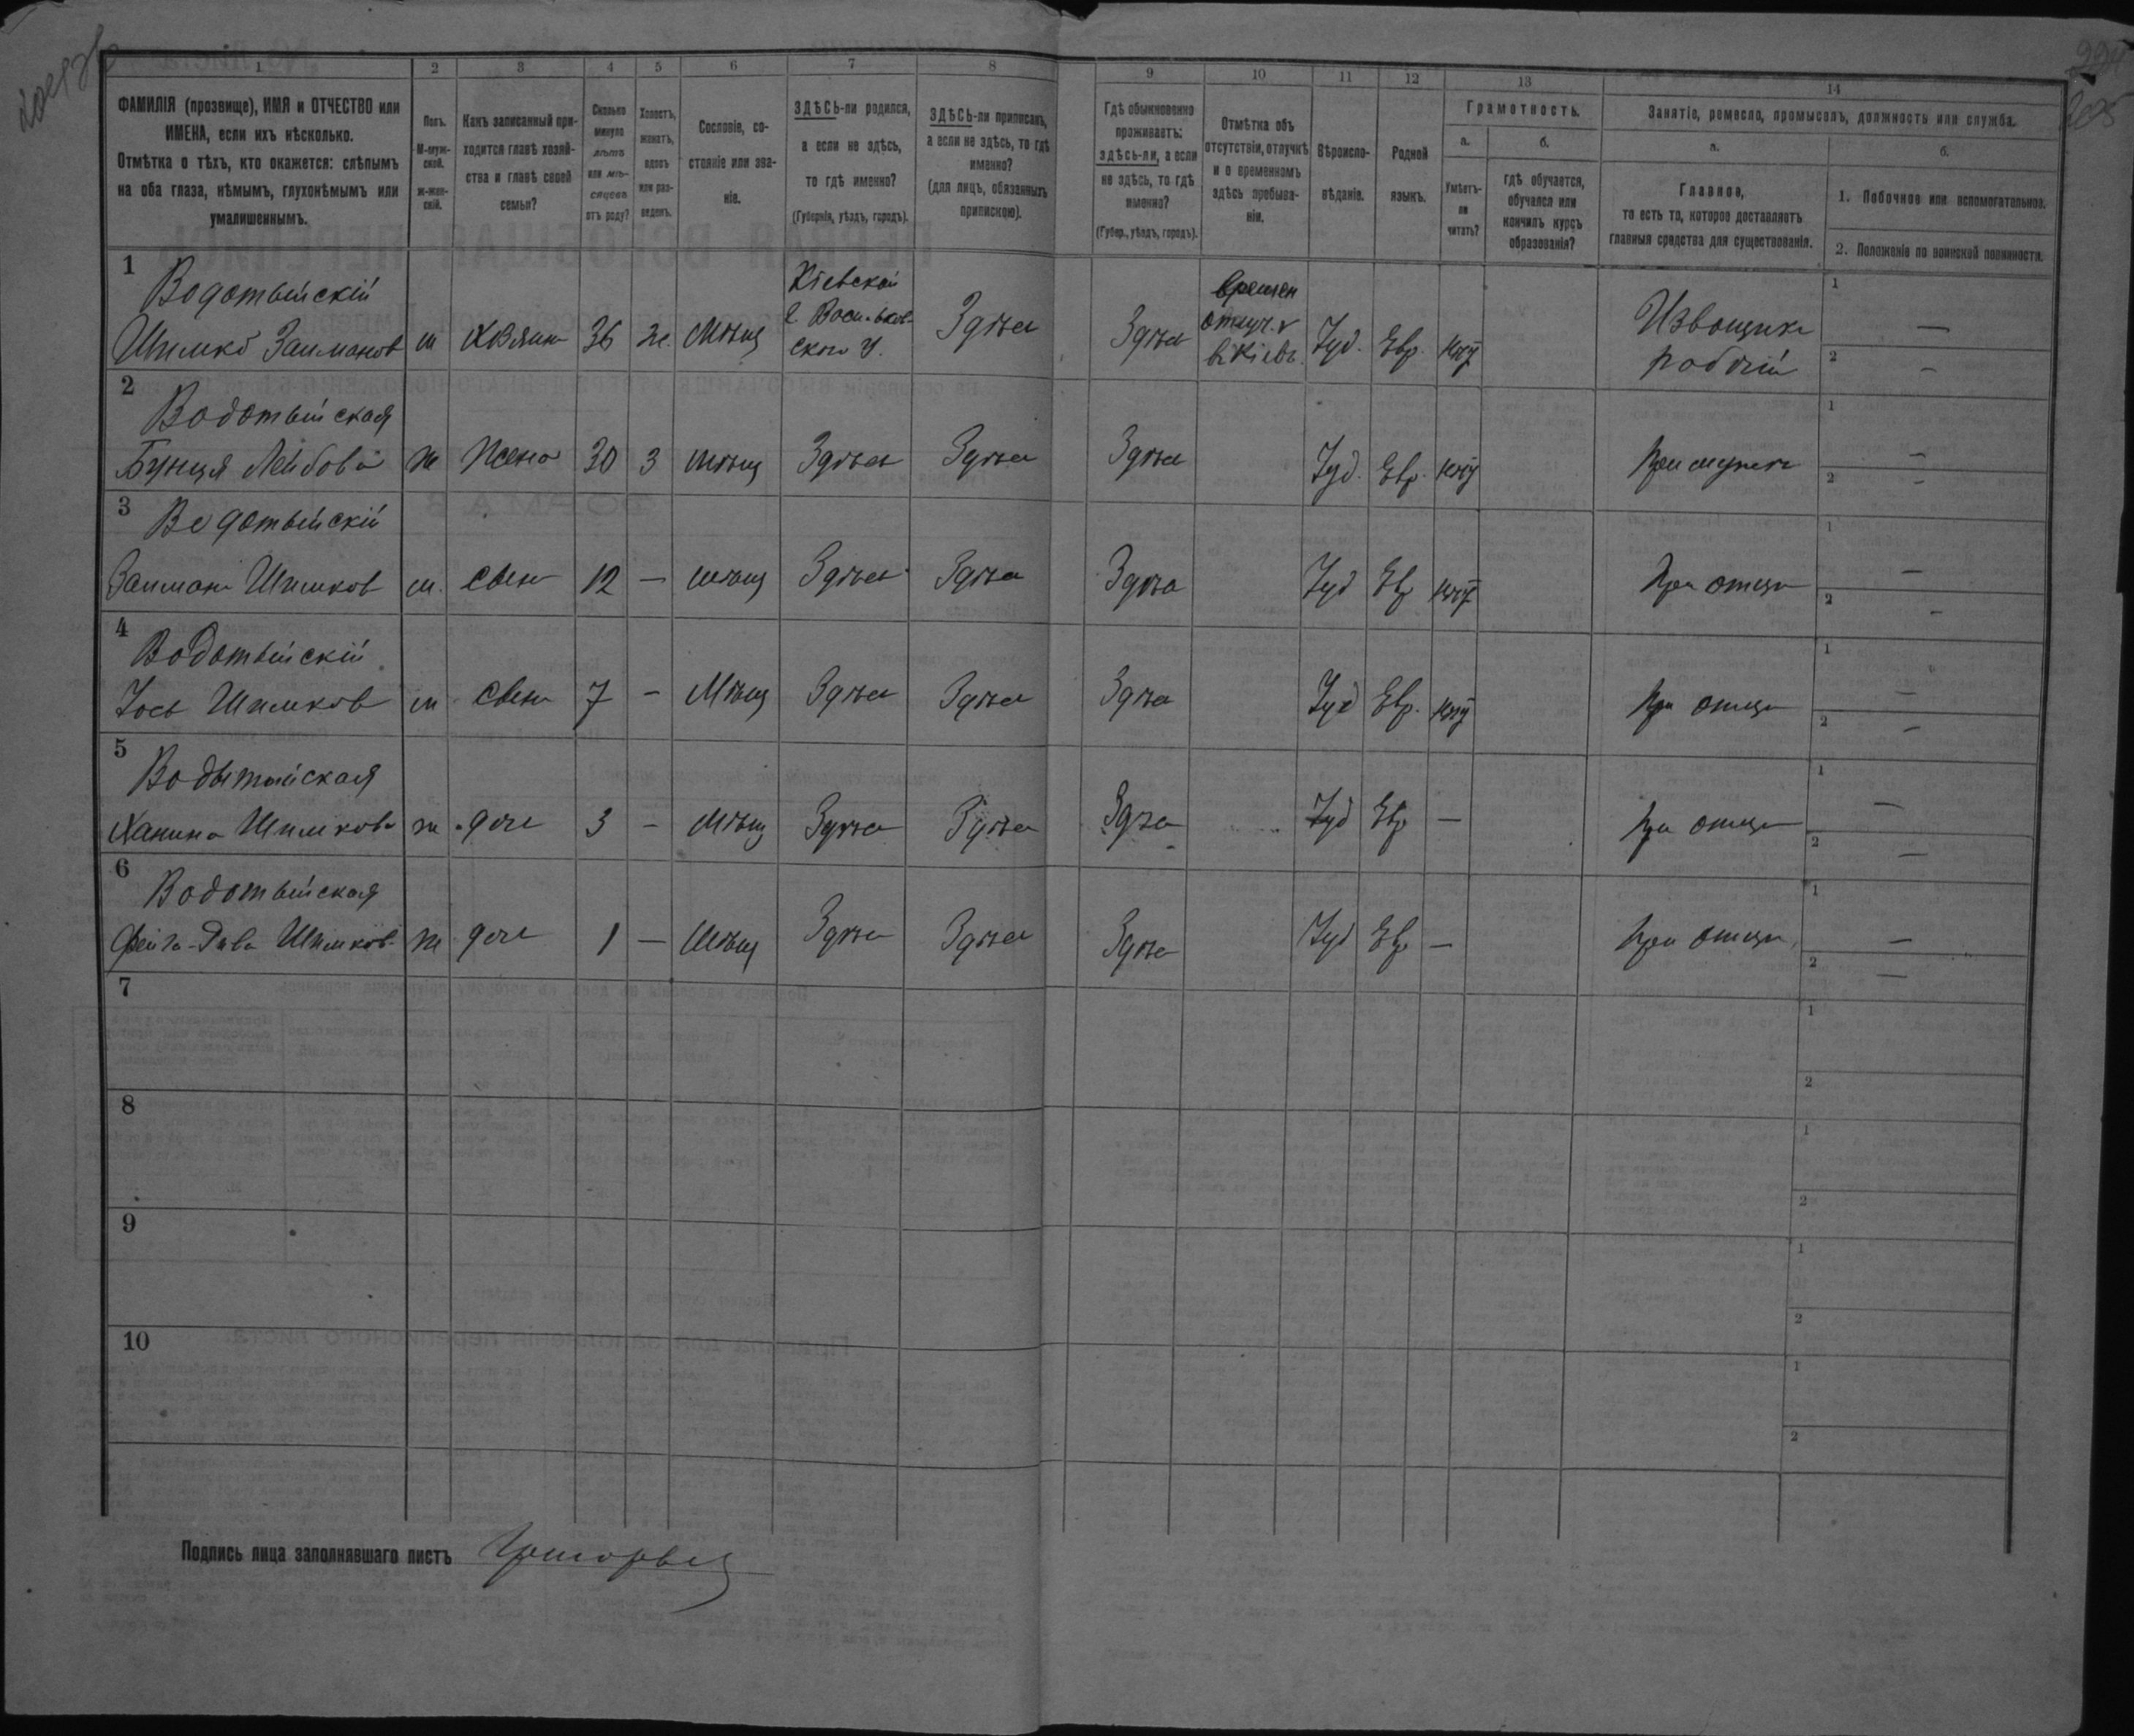 1 2 3 4 5 6 7 8 9 10 11 12 13 14
ФАМИЛІЯ (прозвище), ИМЯ и ОТЧЕСТВО или
ИМЕНА, если ихъ нѣсколько.
Отмѣтка о тѣхъ, кто окажется: слѣпымъ
на оба глаза, нѣмымъ, глухонѣмымъ или
умалишеннымъ.
Полъ.
М-муж-
ской.
ж-жен-
скій.
Какъ записанный при-
ходится главѣ хозяй-
ства и главѣ своей
семьи?
Сколько
минуло
лѣтъ
или мѣ-
сяцевъ
отъ роду?
Холостъ,
женатъ,
вдовъ
или раз-
веденъ.
Сословіе, со-
стояніе или зва-
ніе.
ЗДѢСЬ-ли родился,
а если не здѣсь,
то гдѣ именно?
(Губернія, уѣздъ, городъ).
ЗДѢСЬ-ли приписанъ,
а если не здѣсь, то гдѣ
именно?
(для лицъ, обязанныхъ
припискою).
Гдѣ обыкновенно
проживаетъ:
здѣсь-ли, а если
не здѣсь, то гдѣ
именно?
(Губер., уѣздъ, городъ).
Отмѣтка объ
отсутствіи, отлучкѣ
и о временномъ
здѣсь пребыва-
ніи.
Вѣроиспо-
вѣданіе.
Родной
языкъ.
Грамотность.
а.
Умѣетъ-
ли
читать?
б.
гдѣ обучается,
обучался или
кончилъ курсъ
образованія?
Занятіе, ремесло, промыселъ, должность или служба.
а.
Главное,
то есть то, которое доставляетъ
главныя средства для существованія.
б.
1. Побочное или вспомогательное.
2. Положеніе по воинской повинности.
1
Водотыйскій
Шимко Залманов м хозяин 36 ж. Мѣщ Кіевской
г. Васильков-
ского у. Здѣсь Здѣсь времен
отлуч. в
Кіевъ. Іуд. Евр. Извощик
рабочій 1 — 2 -
2
Водотыйская
Бунця Лейбова ж Жена 30 З мѣщ Здѣсь Здѣсь Здѣсь Іуд. Евр. при мужѣ 1 - 2 -
3
Водотыйскій
Залман Шимков м. сын 12 — мѣщ Здѣсь Здѣсь Здѣсь Іуд Евр при отцѣ 1 — 2 -
4
Водотыйскій
Іось Шимков м сын 7 - Мѣщ Здѣсь Здѣсь Здѣсь Іуд Евр. при отцѣ 1 — 2 —
5
Водотыйская
Ханина Шимкова ж дочь 3 - Мѣщ Здѣсь Здѣсь Здѣсь Іуд Евр — при отцѣ 1 — 2 —
6
Водотыйская
Фейга-Рива Шимков. ж дочь 1 — Мѣщ Здѣсь Здѣсь Здѣсь Іуд Евр — при отцѣ 1 — 2 —
7 1 2
8 1 2
9 1 2
10 1 2
Подпись лица заполнявшаго листъ